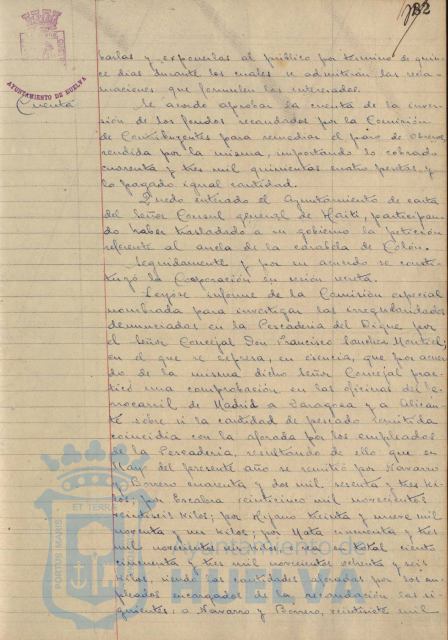 182
AYUNTAMIENTO DE HUELVA
barlas y exponerlas al público por término de quin-
ce dias durante los cuales se admitirán las recla-
maciones que formulen los interesados.
Cuenta
Se acordó aprobar la cuenta de la inver-
sión de los fondos recaudados por la Comisión
de Contribuyentes para remediar el paro de obreros
rendida por la misma, importando lo cobrado
cuarenta y tres mil quinientas cuatro pesetas, y
lo pagado igual cantidad.
Quedó enterado el Ayuntamiento de carta
del Señor Consul general de Haiti, participan-
do haber trasladado a su gobierno la petición
referente al ancla de la carabela de Colón.
Seguidamente y por su acuerdo se consti-
tuyó la Corporación en sesión secreta.
Leyóse informe de la Comisión especial
nombrada para investigar las irregularidades
denunciadas en la Pescaderia del Dique por
el Señor Concejal Don Francisco Sanchez Montiel;
en el que se expresa, en esencia, que por acuer-
do de la misma dicho Señor Concejal prac-
ticó una comprobación en las oficinas del fe-
rrocarril de Madrid a Zaragoza y a Alican-
te sobre si la cantidad de pescado remitida
coincidia con la aforada por los empleados
de la Pescaderia, resultando de ello que en
Mayo del presente año se remitió por Navarro
y Borrero cuarenta y dos mil sesenta y tres ki-
los; por Escalera veinticinco mil novecientos
veintiseis kilos; por Rijano treinta y nueve mil
noventa y un kilos; por Mata cuarenta y tres
mil novecientos kilos, o sea un total ciento
cincuenta y tres mil novecientos ochenta y seis
kilos, siendo las cantidades aforadas por los em-
pleados encargados de la recaudación las si-
guientes: a Navarro y Borrero, veintisiete mil
PORTUS MARIS ET TERRAE
Ayuntamiento de
HUELVA